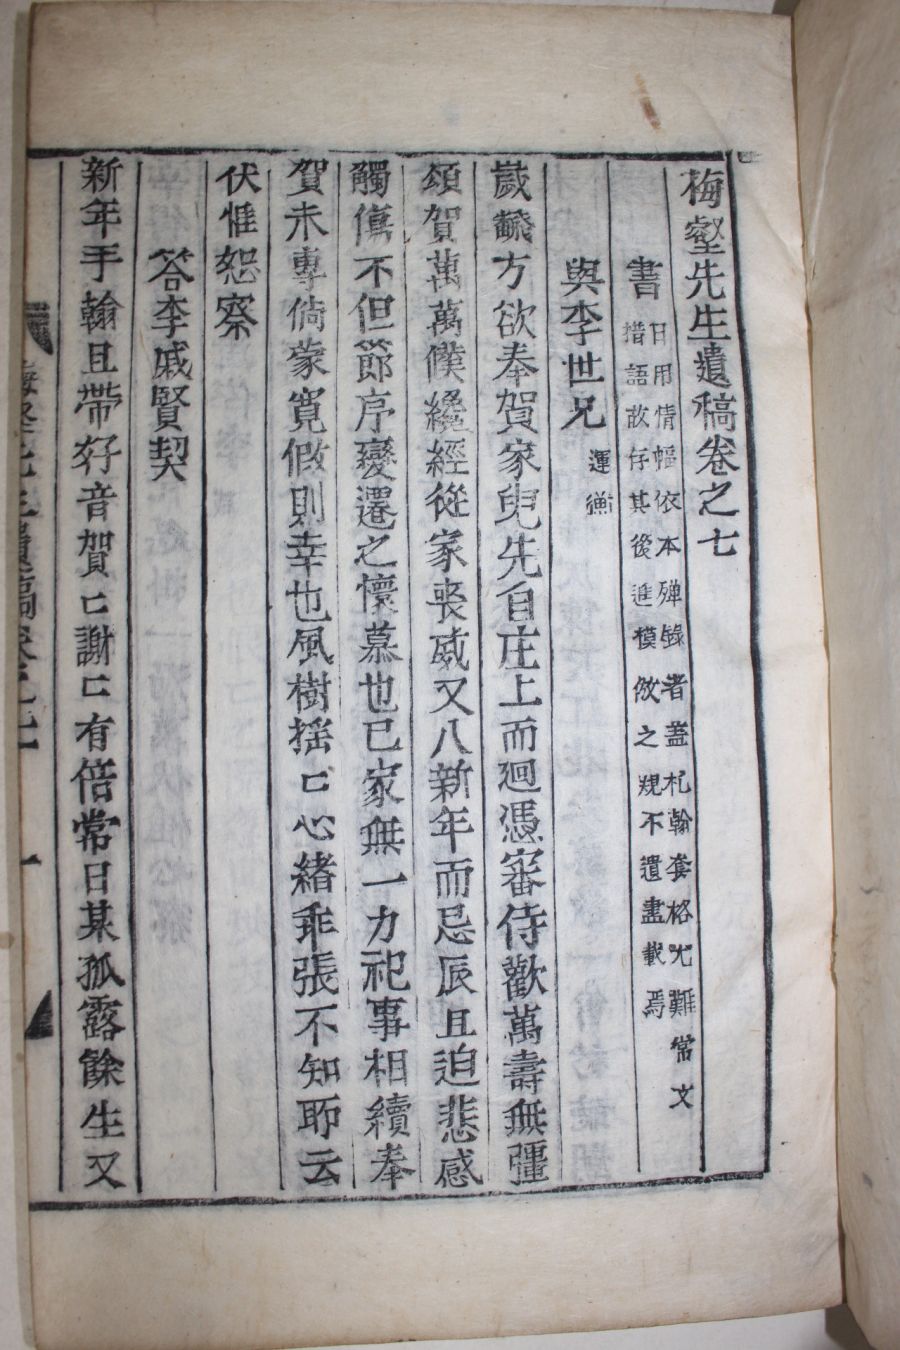 梅壑先生遺稿卷之七
書 日用情幅依本殫錄者蓋札翰套格尤難常文
措語故存其後進模倣之規不遺盡載焉
與李世兄 運
歲籥方欲奉賀家兒先自庄上而迴憑審侍歡萬壽無彊
頌賀萬萬僕纔經從家喪威又八新年而忌辰且迫悲感
觸傷不但節序變遷之懷慕也已家無一力祀事相續奉
賀未專倘蒙寬假則幸也風樹搖匕心緖乖張不知所云
伏惟恕察
答李戚賢契
新年手翰且帶好音賀匕謝匕有倍常日某孤露餘生又